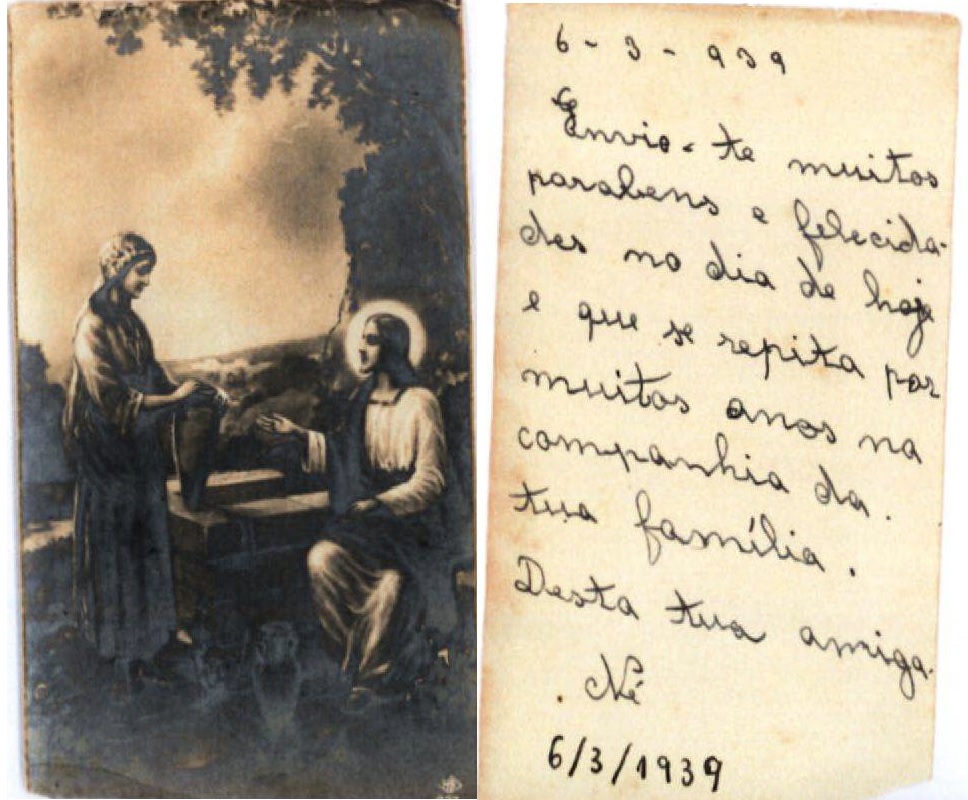 6 - 3 - 939
Envio-te muitos
parabens e felecida-
des no dia de hoje
e que se repita por
muitos anos na
companhia da
tua família.
Desta tua amiga.
Né
6/3/1939